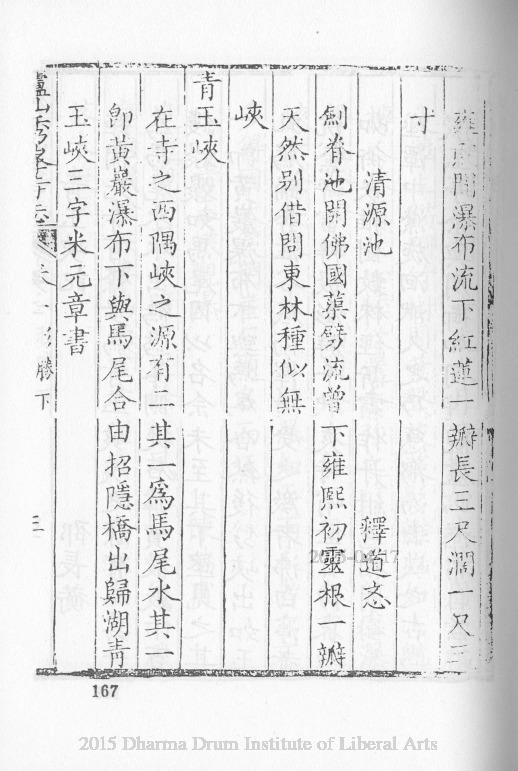 雍熙間瀑布流下紅蓮一瓣長三尺濶一尺三
寸
清源池 釋道忞
劍脊池開佛國蕖劈流曾下雍熙初靈根一瓣
天然別借問東林種似無
峽
青玉峽
在寺之西隅峽之源有二其一為馬尾水其一
卽黃巖瀑布下與馬尾合由招隱橋出歸湖青
玉峽三字米元章書
廬山秀峯寺志 卷一 形勝下 三
167
2015 Dharma Drum Institute of Liberal Arts